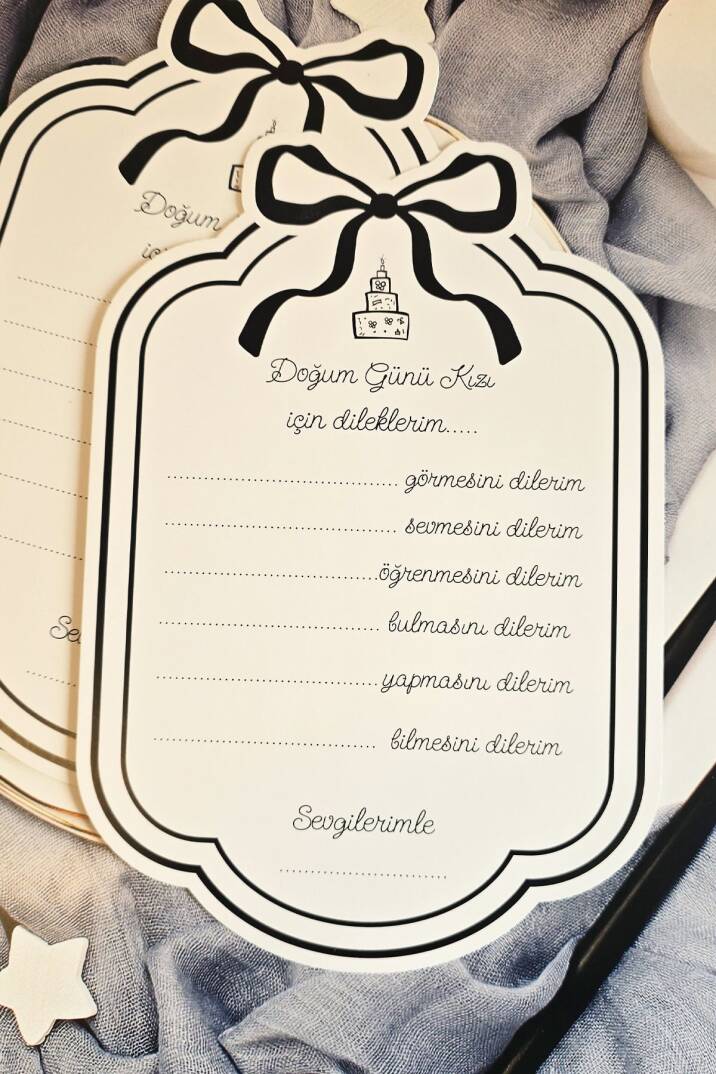 Doğum Günü Kızı
için dileklerim.....
.......................................... görmesini dilerim
.......................................... sevmesini dilerim
.......................................öğrenmesini dilerim
........................................ bulmasını dilerim
........................................yapmasını dilerim
........................................ bilmesini dilerim
Sevgilerimle
..............................
Doğum